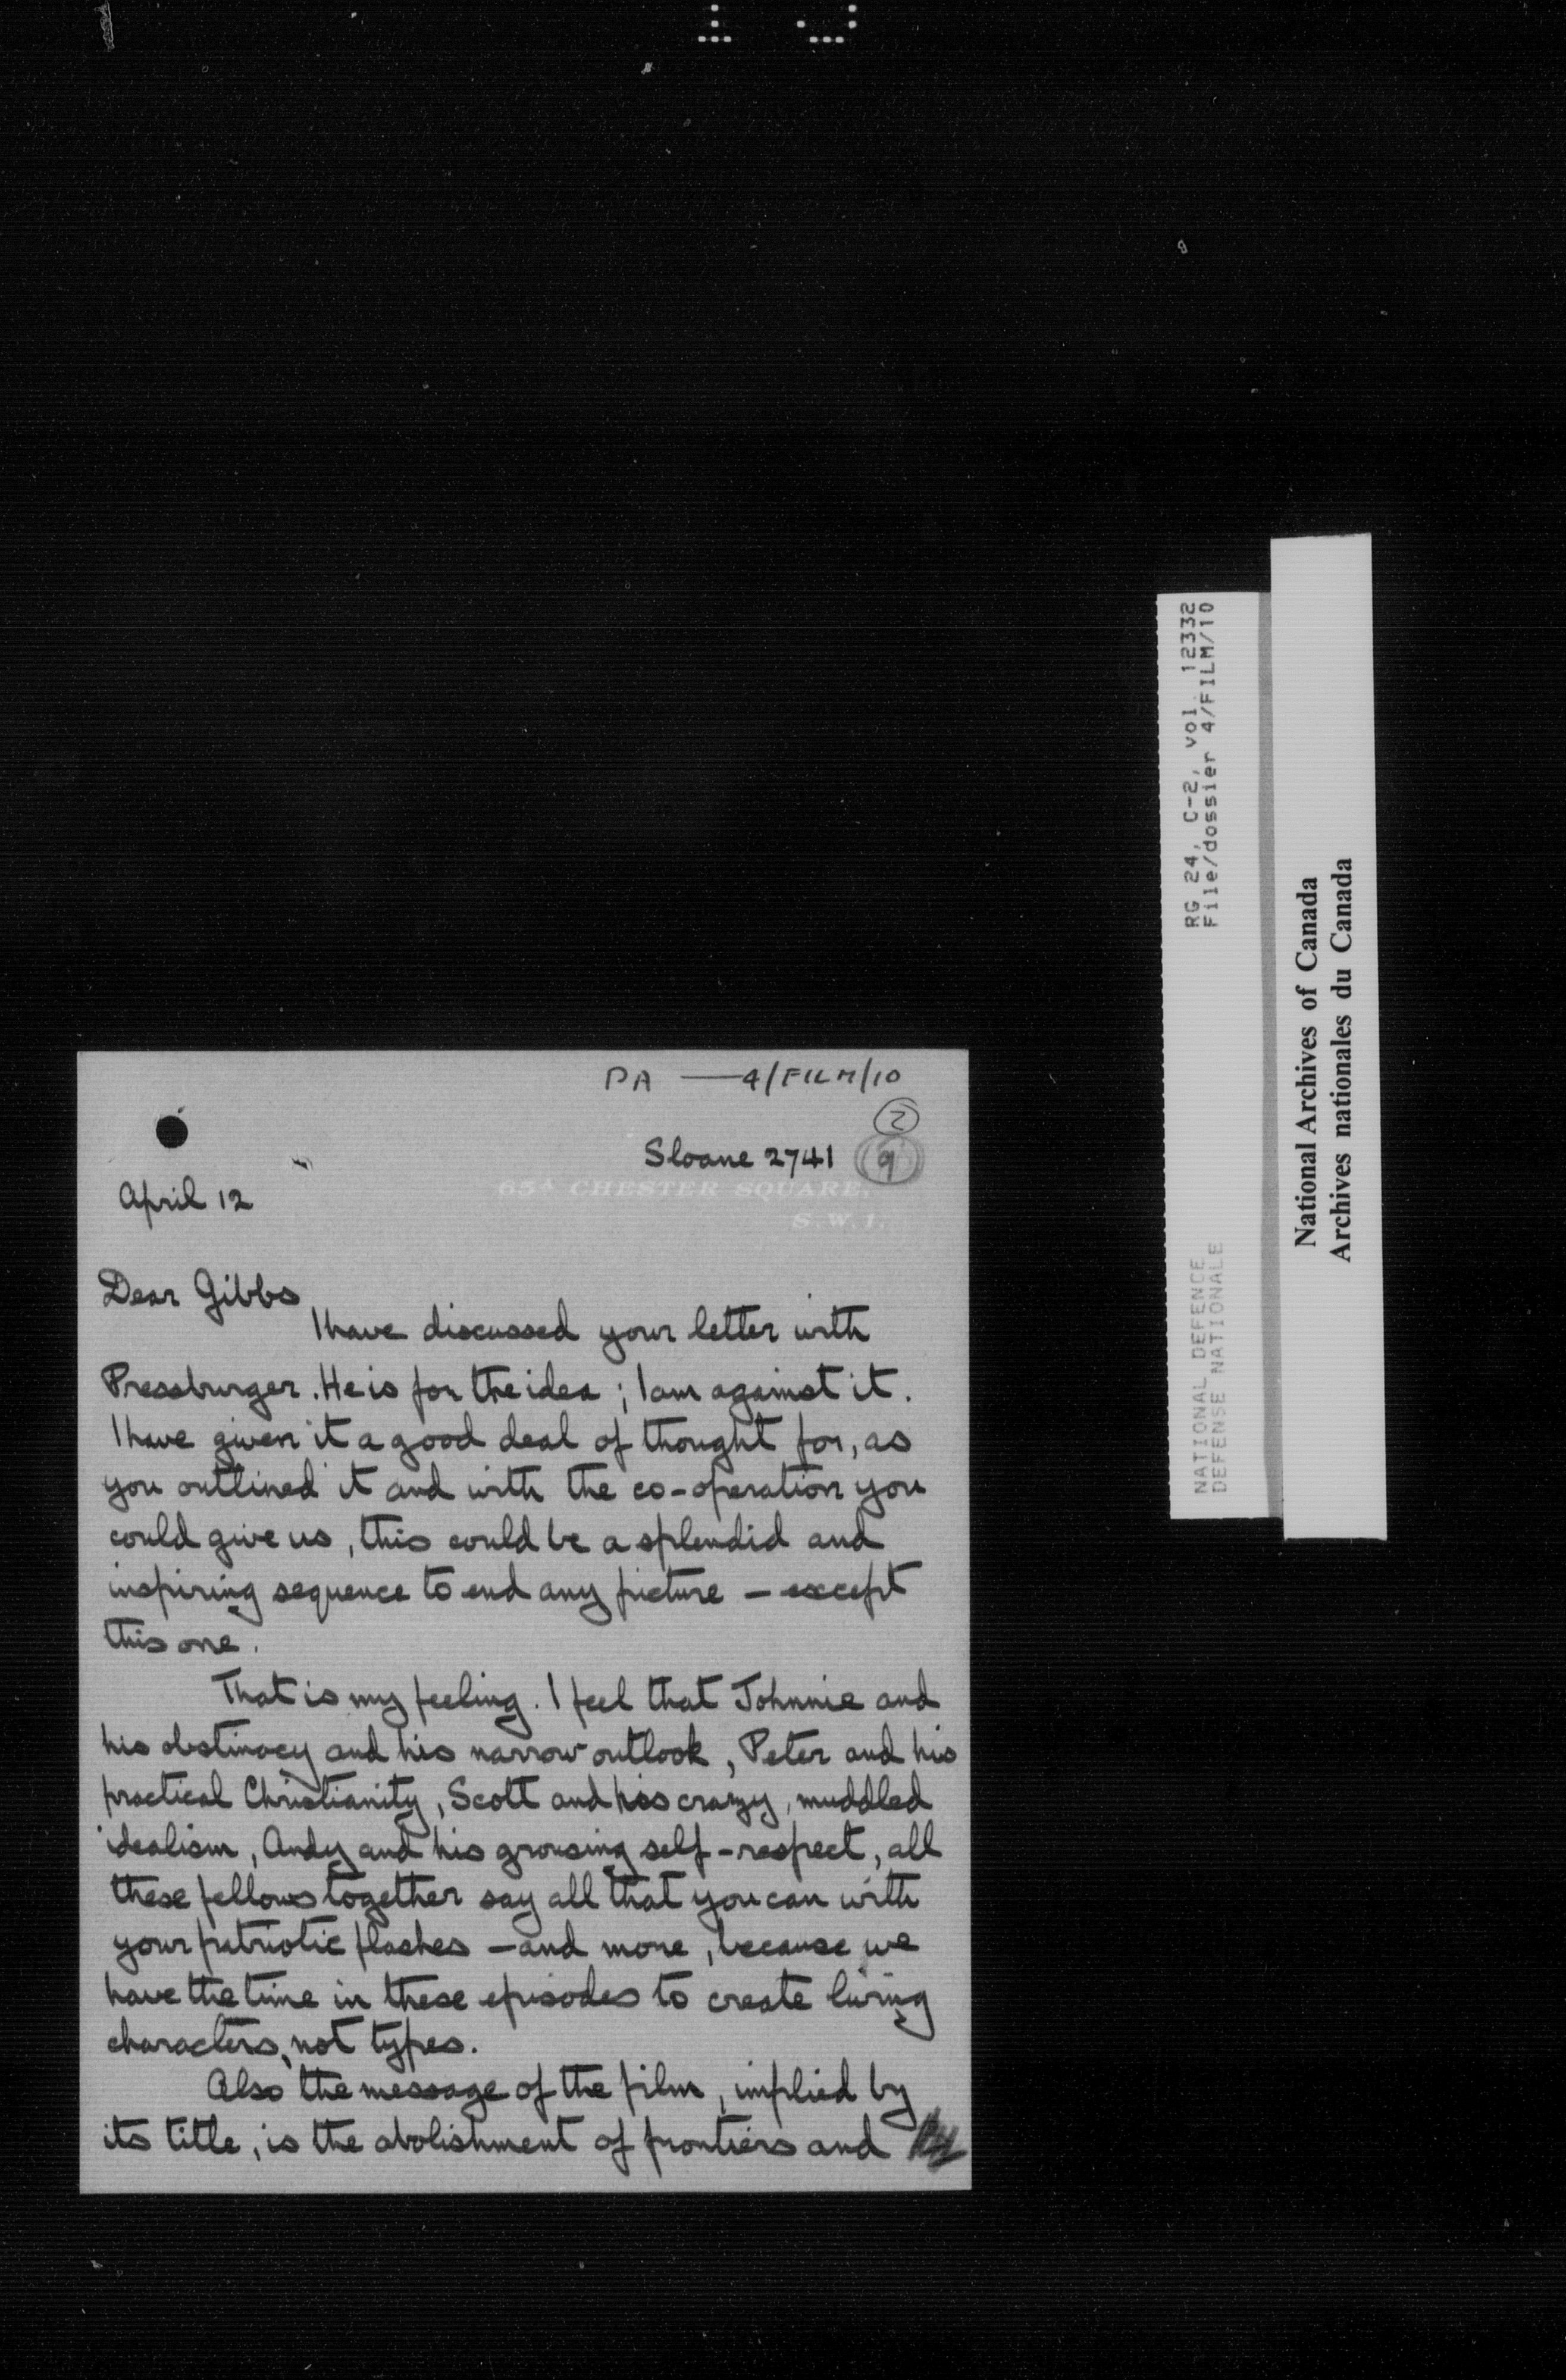 PA — 4/FILM/10
2
Sloane 2741 9
65A CHESTER SQUARE,
S.W.1.
April 12
Dear Gibbs
I have discussed your letter with
Pressburger. He is for the idea; I am against it.
I have given it a good deal of thought for, as
you outlined it and with the co-operation you
could give us, this could be a splendid and
inspiring sequence to end any picture — except
this one.
That is my feeling. I feel that Johnnie and
his obstinacy and his narrow outlook, Peter and his
practical Christianity, Scott and his crazy, muddled
idealism, Andy and his grousing self-respect, all
these fellows together say all that you can with
your patriotic flashes — and more, because we
have the time in these episodes to create living
characters, not types.
Also the message of the film, implied by
its title, is the abolishment of frontiers and
RG 24, C-2, vol. 12332
File/dossier 4/FILM/10
NATIONAL DEFENCE
DEFENSE NATIONALE
National Archives of Canada
Archives nationales du Canada